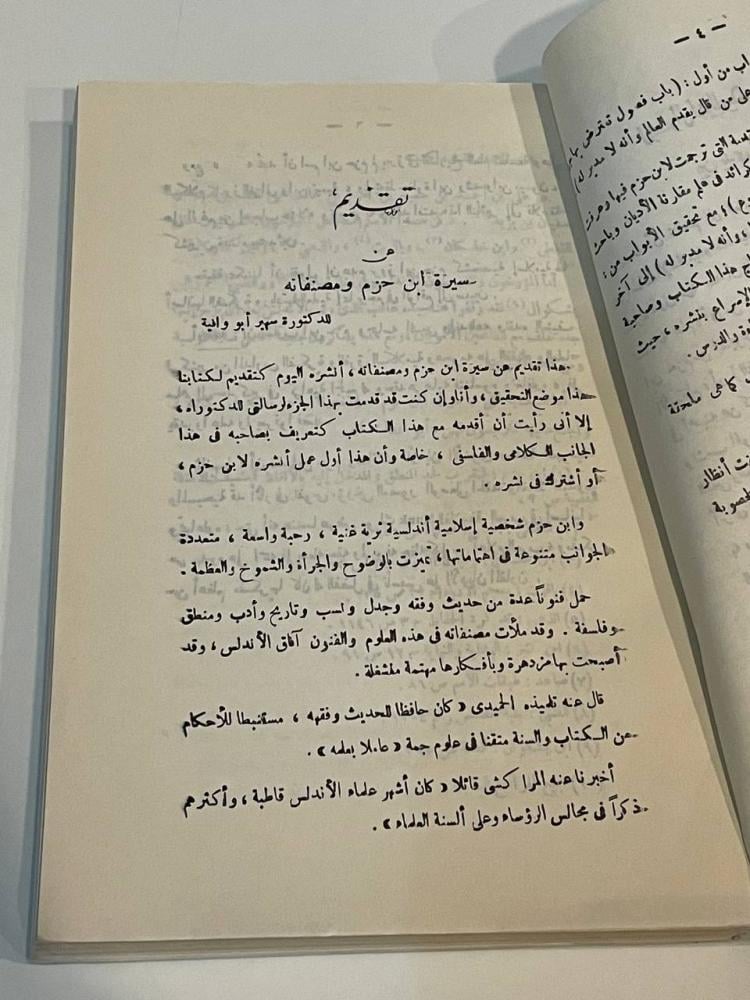 تقديم
عن
سيرة ابن حزم ومصنفاته
للدكتورة سهير أبو وافية
هذا تقديم عن سيرة ابن حزم ومصنفاته، أنشره اليوم كتقديم لكتابنا
هذا موضع التحقيق، وأنا وإن كنت قد قدمت بهذا الجزء لرسالتي للدكتوراه،
إلا أنى رأيت أن أقدمه مع هذا الكتاب كتعريف بصاحبه فى هذا
الجانب الكلامى والفلسفى، خاصة وأن هذا أول عمل أنشره لابن حزم،
أو أشترك فى نشره.
وابن حزم شخصية إسلامية أندلسية ثرية غنية، رحبة واسعة، متعددة
الجوانب متنوعة فى اهتماماتها، تميزت بالوضوح والجرأة والشموخ والعظمة.
حمل فنوناً عدة من حديث وفقه وجدل ونسب وتاريخ وأدب ومنطق
وفلسفة. وقد ملأت مصنفاته فى هذه العلوم والفنون آفاق الأندلس، وقد
أصبحت بها مزدهرة وبأفكارها مهتمة منشغلة.
قال عنه تلميذه الحميدى «كان حافظا للحديث وفقهه، مستنبطا للأحكام
من الكتاب والسنة متقنا فى علوم جمة «عاملا بعلمه».
أخبرنا عنه المراكشى قائلا «كان أشهر علماء الأندلس قاطبة، وأكثرهم
ذكراً فى مجالس الرؤساء وعلى ألسنة العلماء».
— ٤ —
من أول: (باب فصول تعترض بها
من قال بقدم العالم وأنه لا مدبر له)
التى ترجمت لابن حزم فيها وعرفت
كرائد فى علم مقارنة الأديان وباحث
مع تحقيق الأبواب من:
وأنه لا مدبر له) إلى آخر
هذا الكتاب وصاحبه
بنشره، حيث
والدرس.
كما هى
أنظار